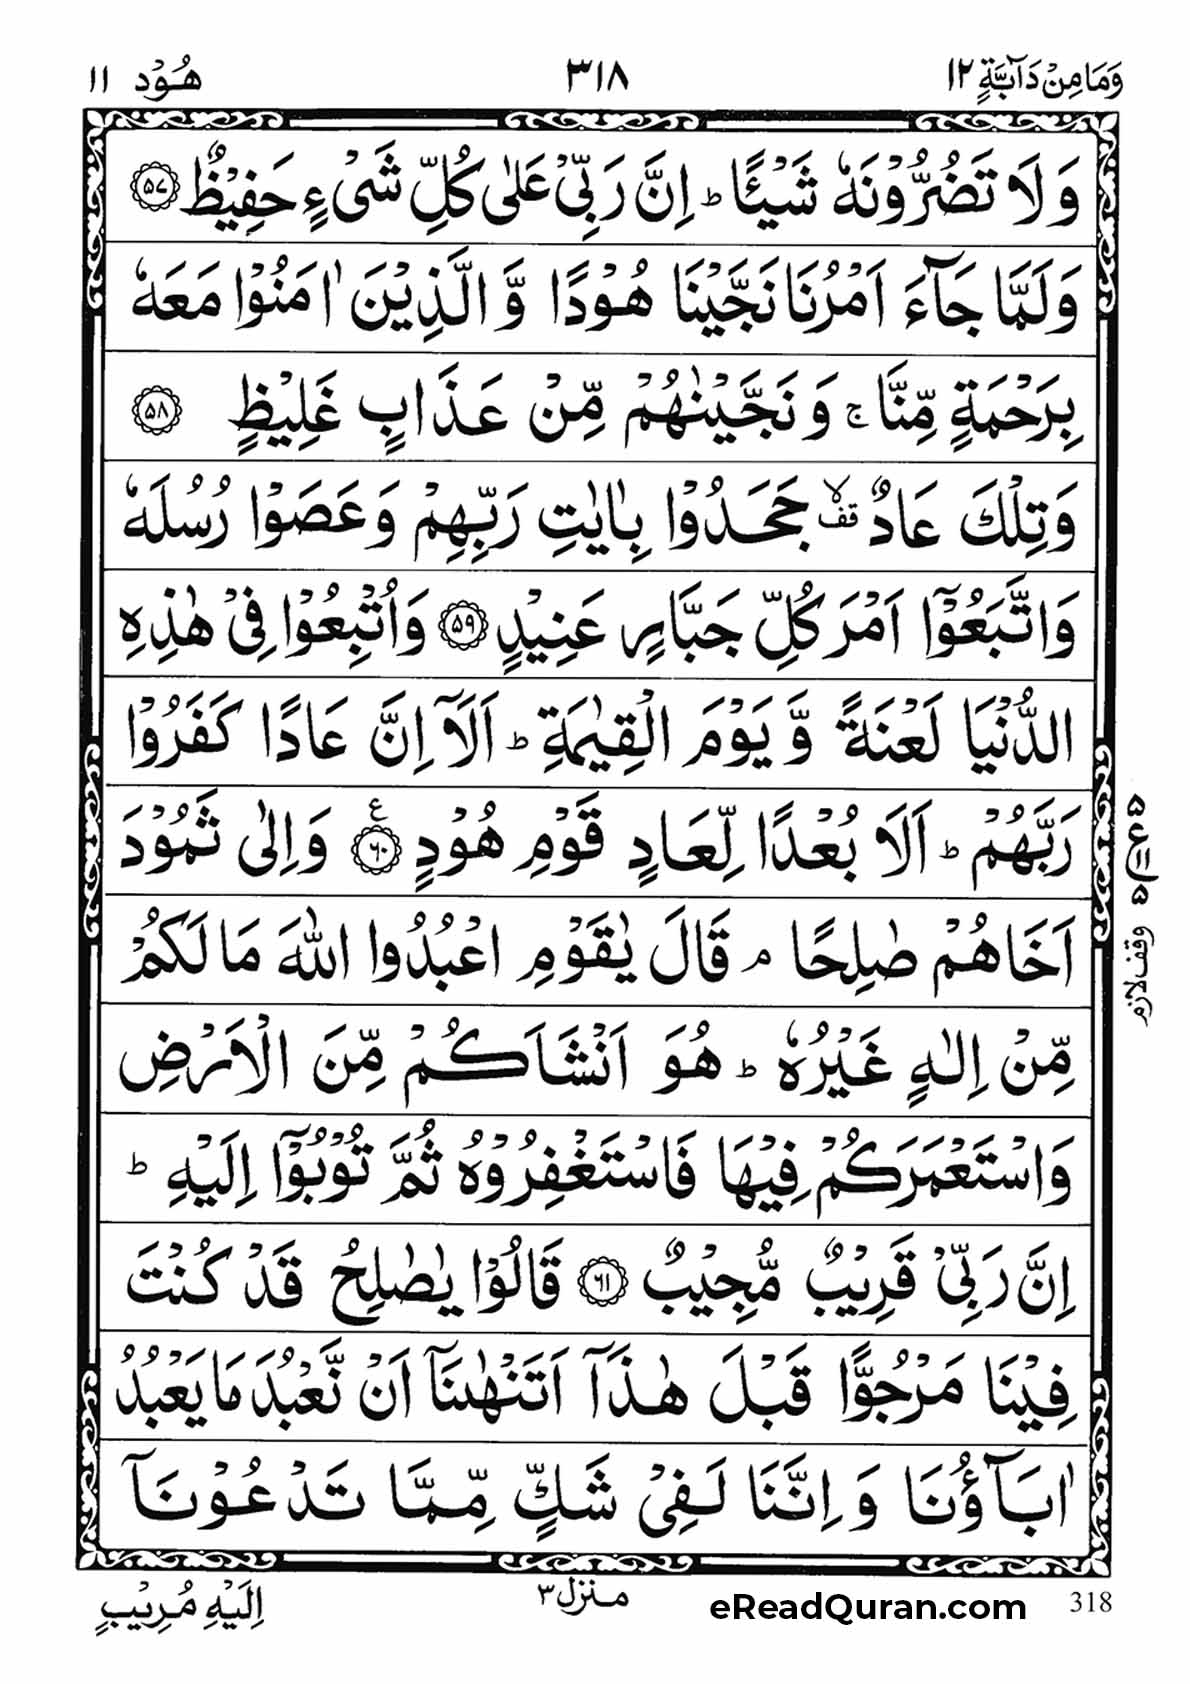 وَمَا مِنْ دَآبَّةٍ ١٢ ٣١٨ هُوْد ١١
وَلَا تَضُرُّوْنَهٗ شَيْـًٔا ؕ اِنَّ رَبِّىْ عَلٰى كُلِّ شَىْءٍ حَفِيْظٌ ۝۵۷
وَلَمَّا جَآءَ اَمْرُنَا نَجَّيْنَا هُوْدًا وَّ الَّذِيْنَ اٰمَنُوْا مَعَهٗ
بِرَحْمَةٍ مِّنَّا ۚ وَ نَجَّيْنٰهُمْ مِّنْ عَذَابٍ غَلِيْظٍ ۝۵۸
وَتِلْكَ عَادٌ ۙ قف جَحَدُوْا بِاٰيٰتِ رَبِّهِمْ وَعَصَوْا رُسُلَهٗ
وَاتَّبَعُوْۤا اَمْرَ كُلِّ جَبَّارٍ عَنِيْدٍ ۝۵۹ وَاُتْبِعُوْا فِىْ هٰذِهِ
الدُّنْيَا لَعْنَةً وَّ يَوْمَ الْقِيٰمَةِ ؕ اَلَاۤ اِنَّ عَادًا كَفَرُوْا
رَبَّهُمْ ؕ اَلَا بُعْدًا لِّعَادٍ قَوْمِ هُوْدٍ ۝۶۰ ع وَاِلٰى ثَمُوْدَ
اَخَاهُمْ صٰلِحًا ۘ قَالَ يٰقَوْمِ اعْبُدُوا اللّٰهَ مَا لَكُمْ
مِّنْ اِلٰهٍ غَيْرُهٗ ؕ هُوَ اَنْشَاَكُمْ مِّنَ الْاَرْضِ
وَاسْتَعْمَرَكُمْ فِيْهَا فَاسْتَغْفِرُوْهُ ثُمَّ تُوْبُوْۤا اِلَيْهِ ؕ
اِنَّ رَبِّىْ قَرِيْبٌ مُّجِيْبٌ ۝۶۱ قَالُوْا يٰصٰلِحُ قَدْ كُنْتَ
فِيْنَا مَرْجُوًّا قَبْلَ هٰذَاۤ اَتَنْهٰىنَاۤ اَنْ نَّعْبُدَ مَا يَعْبُدُ
اٰبَآؤُنَا وَ اِنَّنَا لَفِىْ شَكٍّ مِّمَّا تَدْعُوْنَاۤ
۵ ع ۵
وقف لازم
اِلَيْهِ مُرِيْبٍ
منزل ٣
eReadQuran.com 318